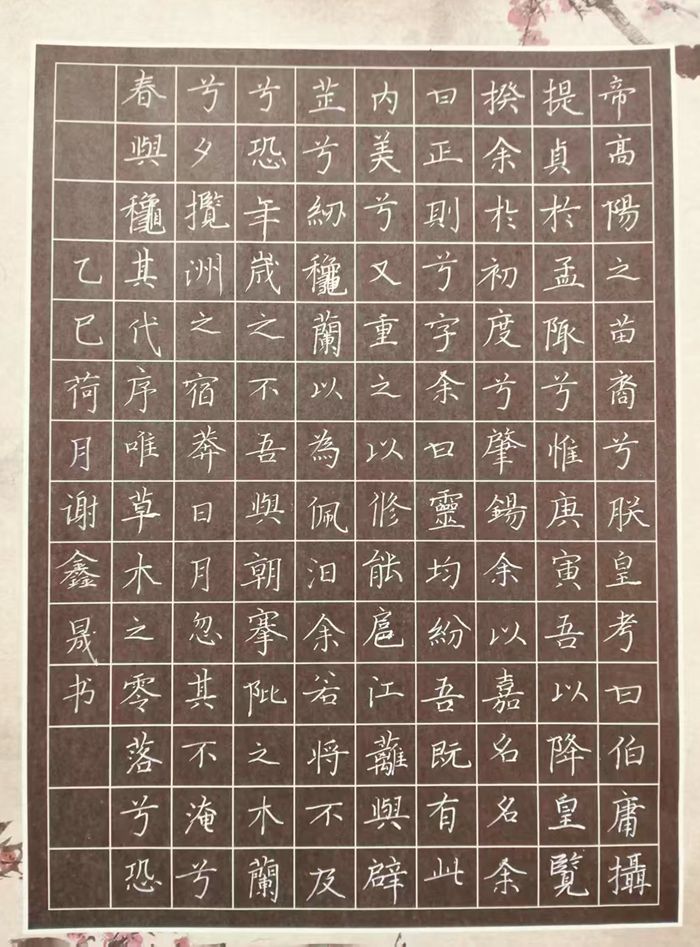 帝高陽之苗裔兮朕皇考曰伯庸攝
提貞於孟陬兮惟庚寅吾以降皇覽
揆余於初度兮肇錫余以嘉名名余
曰正則兮字余曰靈均紛吾既有此
内美兮又重之以修能扈江蘺與辟
芷兮紉龝蘭以為佩汩余若将不及
兮恐年歲之不吾與朝搴阰之木蘭
兮夕攬洲之宿莽日月忽其不淹兮
春與龝其代序唯草木之零落兮恐
乙巳荷月谢鑫晟书